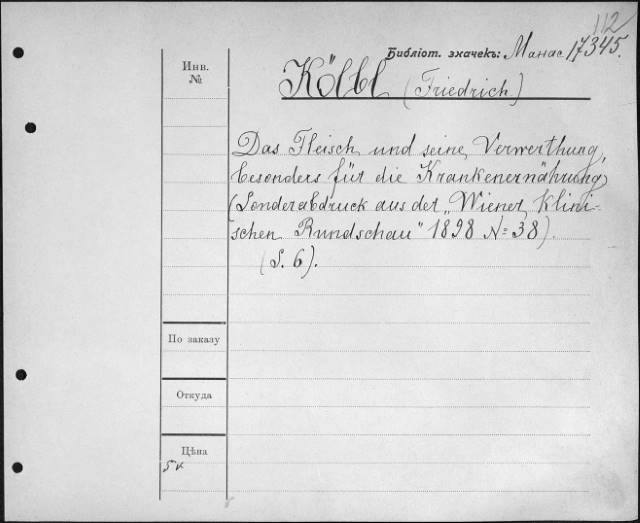 112
Библіот. значекъ: Манас 17345.
Инв.
№
Kölbl (Friedrich.)
Das Fleisch und seine Verwerthung,
besonders für die Krankenernährung
(Sonderabdruck aus der „Wiener klini-
schen Rundschau" 1898 № 38).
(S. 6).
По заказу
Откуда
Цѣна
5к